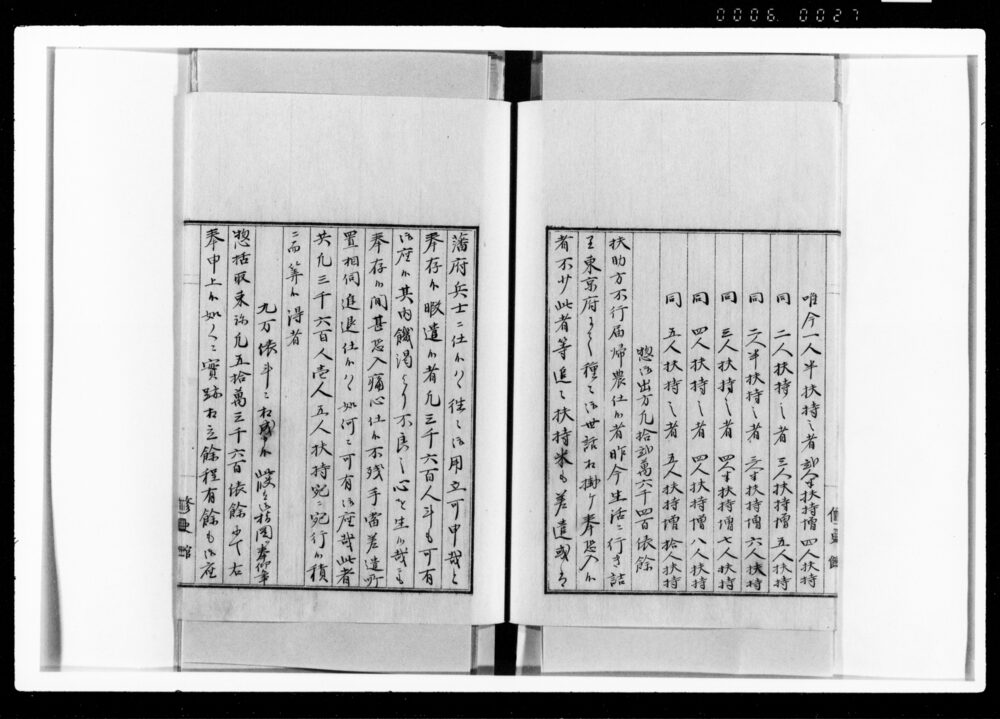 0006 0027
唯今一人半扶持之者 弐人半扶持増 四人扶持
同 二人扶持之者 三人扶持増 五人扶持
同 二人半扶持之者 三人半扶持増 六人扶持
同 三人扶持之者 四人扶持増 七人扶持
同 四人扶持之者 四人扶持増 八人扶持
同 五人扶持之者 五人扶持増 拾人扶持
惣御出方凡拾弐萬六千四百俵余
扶助方不行届帰農仕候者昨今生活ニ行き詰
王東京府より種々御世話相掛ケ奉恐入候
者不少此者等追々扶持米も差遣或は
藩府兵士ニ仕候ハヽ往々御用立可申哉と
奉存候暇遣候者凡三千六百人斗も可有
御座候其内餓渇より不良之心を生候哉も
奉存候間甚恐入痛心仕候不残手當差遣所
置相伺追退仕候ハヽ如何ニ可有御座哉此者
共凡三千六百人壱人五人扶持宛ニ宛行候積
ニ而算候得者
九万俵斗ニ相成候
惣括取束弥凡五拾萬三千六百俵餘ニ而右
奉申上候如くニ實跡相立餘程有餘も御座
修史館
修史館